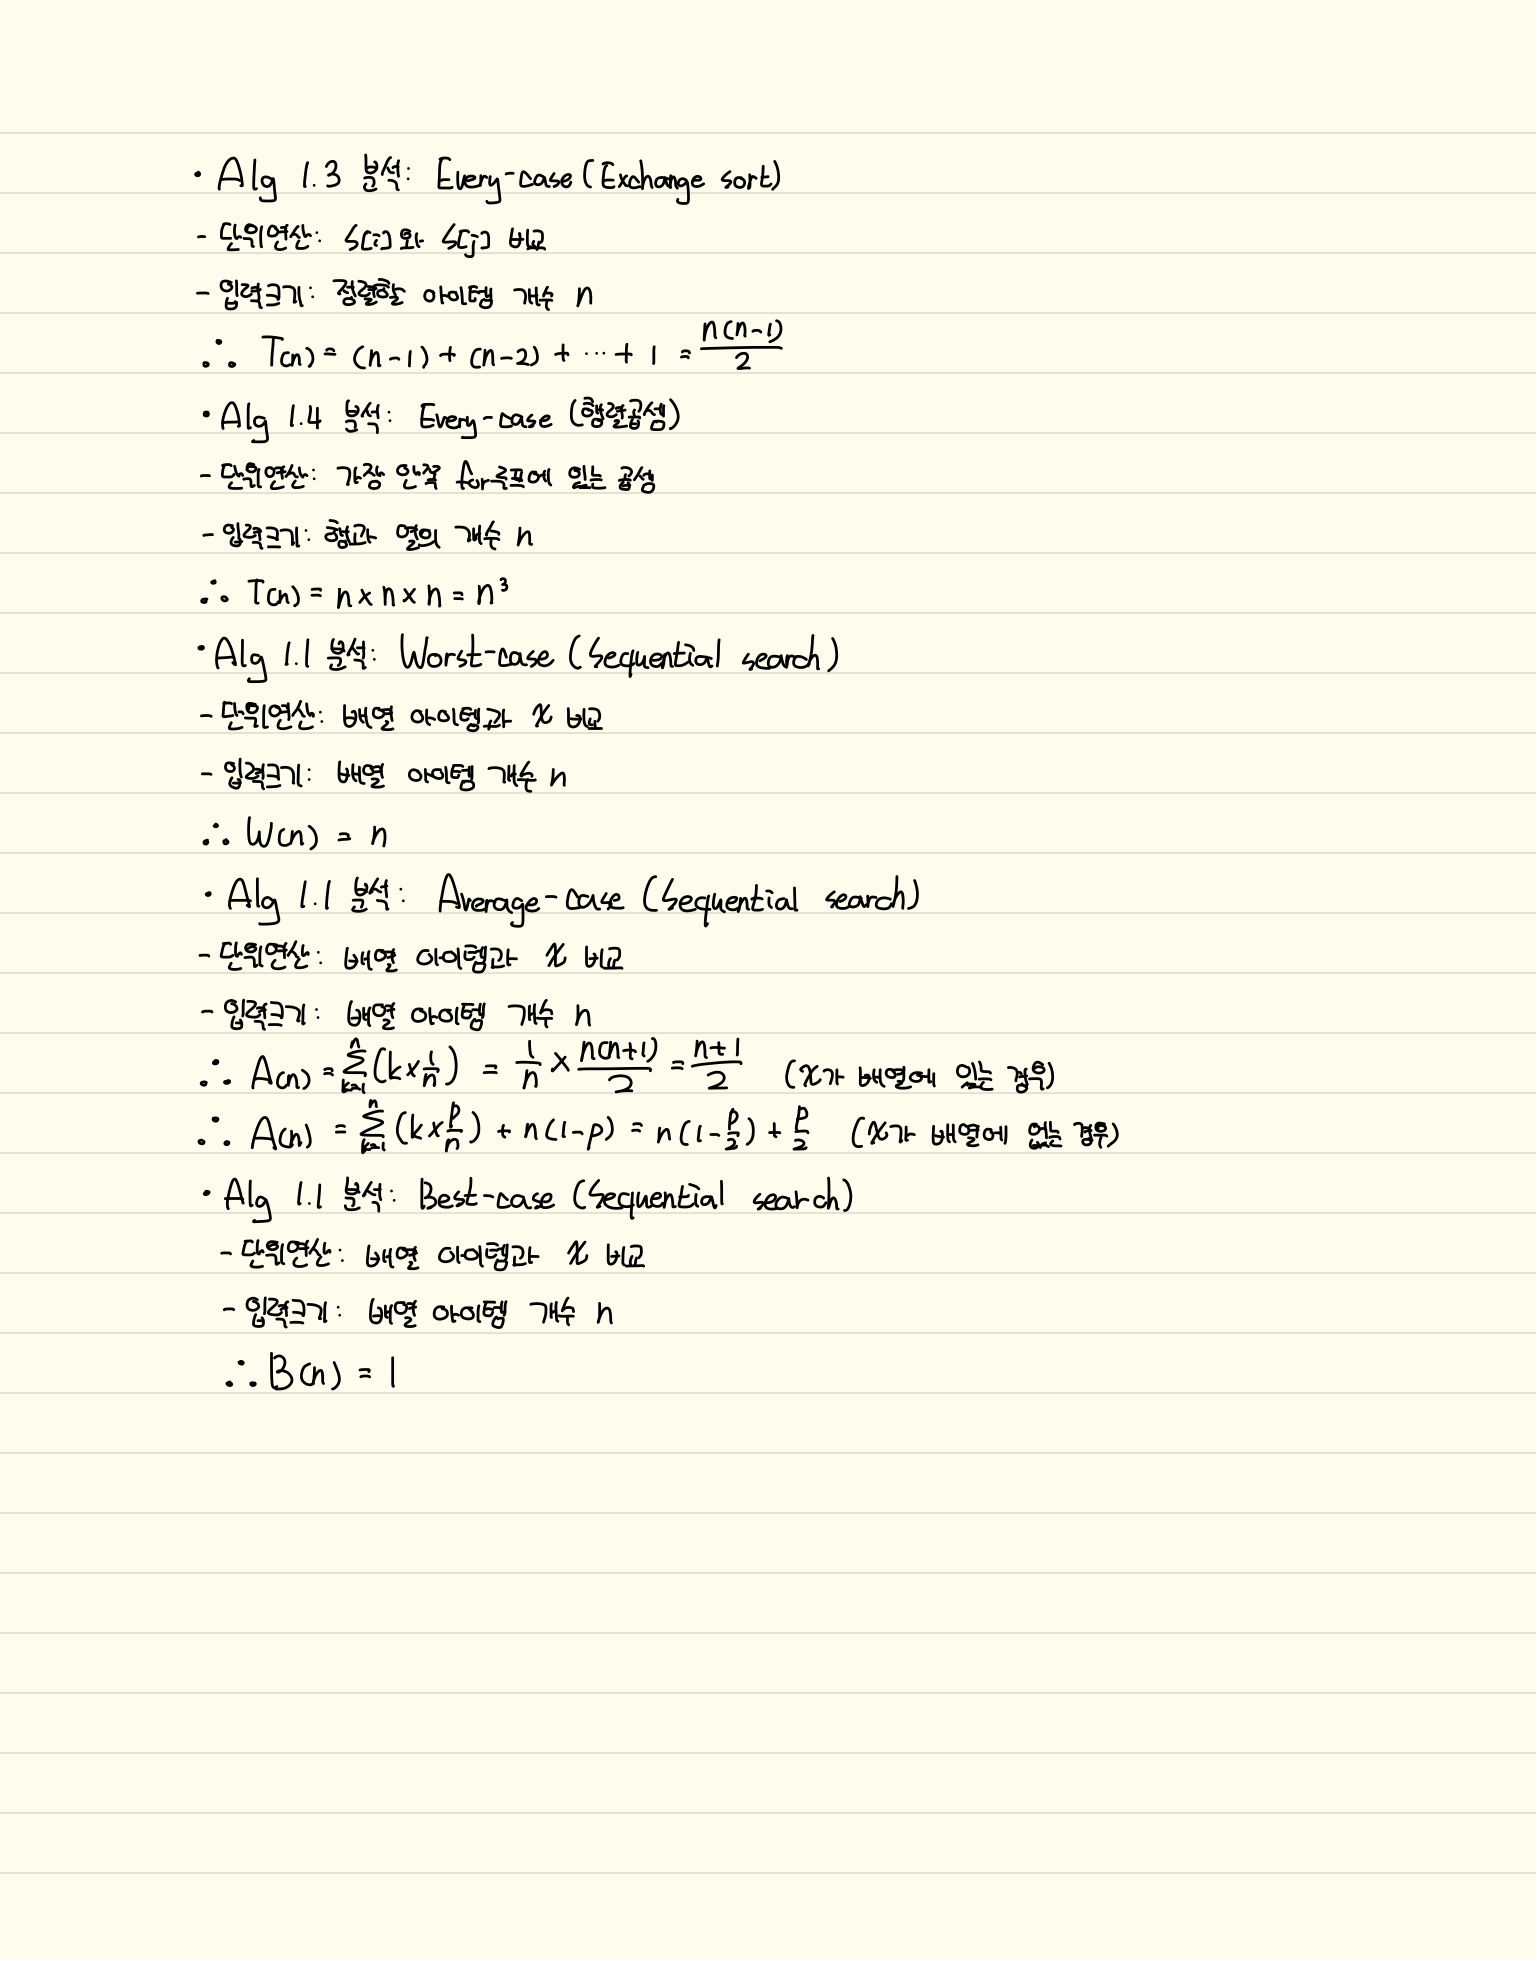 · Alg 1.3 분석: Every-case (Exchange sort)
- 단위연산: S[i]와 S[j] 비교
- 입력크기: 정렬할 아이템 개수 n
∴ T(n) = (n-1) + (n-2) + ··· + 1 = n(n-1)/2
· Alg 1.4 분석: Every-case (행렬곱셈)
- 단위연산: 가장 안쪽 for루프에 있는 곱셈
- 입력크기: 행과 열의 개수 n
∴ T(n) = n × n × n = n³
· Alg 1.1 분석: Worst-case (Sequential search)
- 단위연산: 배열 아이템과 x 비교
- 입력크기: 배열 아이템 개수 n
∴ W(n) = n
· Alg 1.1 분석: Average-case (Sequential search)
- 단위연산: 배열 아이템과 x 비교
- 입력크기: 배열 아이템 개수 n
∴ A(n) = Σ_{k=1}^{n} (k × 1/n) = 1/n × n(n+1)/2 = (n+1)/2 (x가 배열에 있는 경우)
∴ A(n) = Σ_{k=1}^{n} (k × p/n) + n(1-p) = n(1-p/2) + p/2 (x가 배열에 없는 경우)
· Alg 1.1 분석: Best-case (Sequential search)
- 단위연산: 배열 아이템과 x 비교
- 입력크기: 배열 아이템 개수 n
∴ B(n) = 1